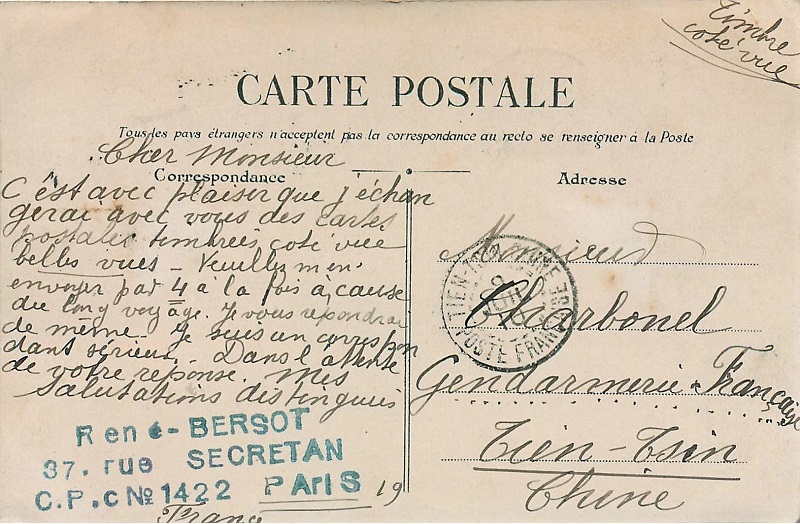 Timbre
coté vue
CARTE POSTALE
Tous les pays étrangers n'acceptent pas la correspondance au recto se renseigner à la Poste
Cher Monsieur
Correspondance
C'est avec plaisir que j'échan
gerai avec vous des cartes
postales timbrées coté vue
belles vues - Veuillez m'en
envoyer par 4 à la fois à cause
du long voyage. Je vous repondrai
de même. Je suis un correspon
dant sérieux. Dans l'attente
de votre réponse. Mes
Salutations distinguées
René-BERSOT
37. rue SECRETAN
C.P.c No 1422 PArIS 19
France
Adresse
Monsieur
Charbonel
Gendarmerie Française
Tien-Tsin
Chine
TIEN-TSIN CHINE
POSTE FRANÇ